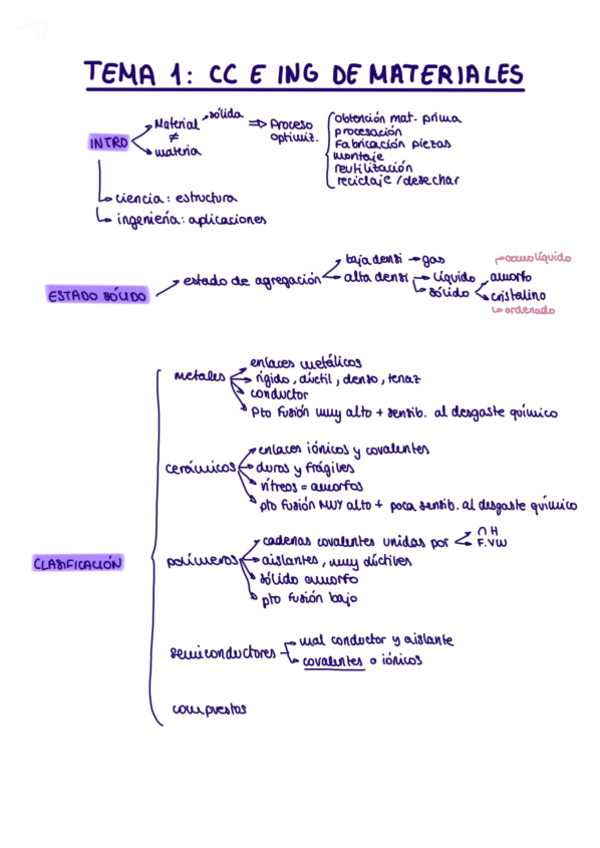 TEMA 1: CC E ING DE MATERIALES
INTRO
Material
sólida
≠
materia
⇒ Proceso
optimiz.
obtención mat. prima
procesación
Fabricación piezas
montaje
reutilización
reciclaje / desechar
ciencia: estructura
ingeniería: aplicaciones
ESTADO SÓLIDO
estado de agregación
baja densi → gas
alta densi → líquido
sólido
amorfo
como líquido
cristalino
ordenado
CLASIFICACIÓN
metales
enlaces metálicos
rígido, dúctil, denso, tenaz
conductor
Pto Fusión muy alto + sensib. al desgaste químico
cerámicos
enlaces iónicos y covalentes
duros y frágiles
vítreos = amorfos
pto fusión MUY alto + poca sensib. al desgaste químico
polímeros
cadenas covalentes unidas por
H
F.VW
aislantes, muy dúctiles
sólido amorfo
pto fusión bajo
semiconductores
mal conductor y aislante
covalentes o iónicos
compuestos